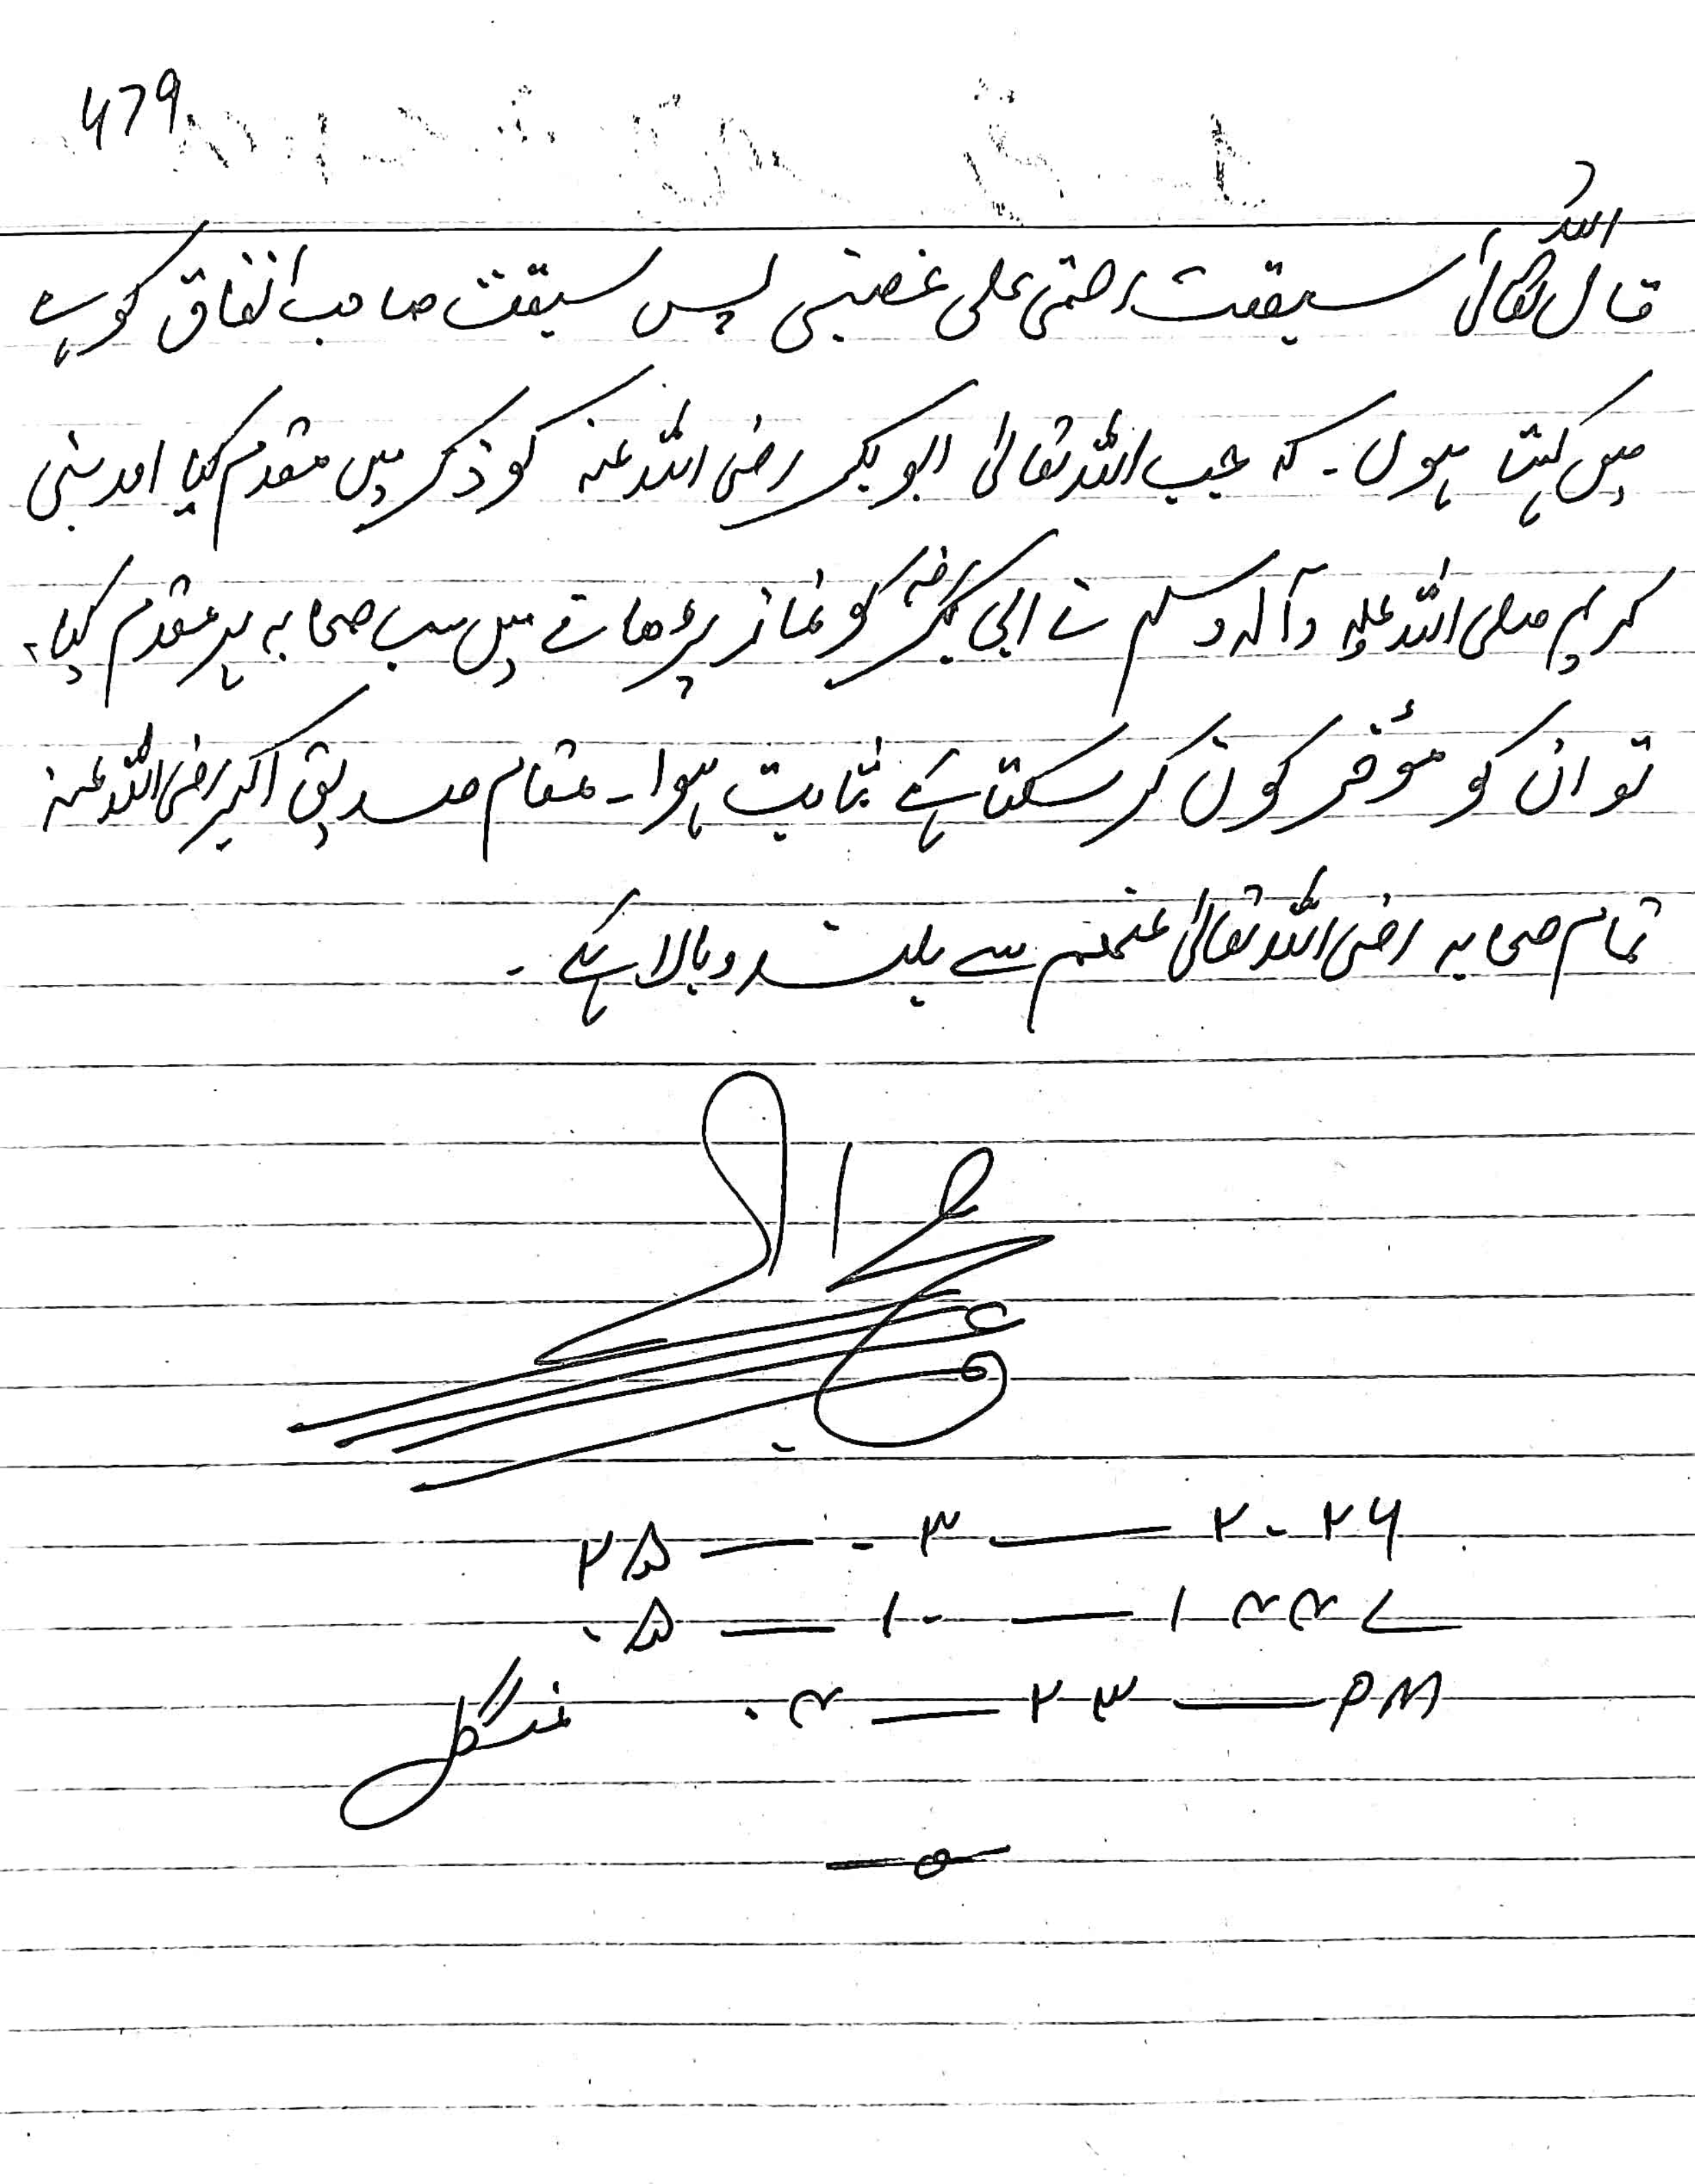 479
قال اللہ تعالیٰ سبقت رحمتی علی غضبی پس سبقت صاحب انفاق کو ہے
میں کہتا ہوں۔ کہ جب اللہ تعالیٰ ابو بکر رضی اللہ عنہ کو ذکر میں مقدم کیا اور نبی
کریم صلی اللہ علیہ وآلہ وسلم نے ابی بکر رضہ کو نماز پڑھانے میں سب صحابہ پر مقدم کیا۔
تو ان کو مؤخر کون کر سکتا ہے ثابت ہوا۔ مقام صدیق اکبر رضی اللہ عنہ
تمام صحابہ رضی اللہ تعالیٰ عنھم سے بلند و بالا ہے۔
۲۵ — ۰۳ — ۲۰۲۶
۰۵ — ۱۰ — ۱۴۴۷
۰۴ — ۲۳ — PM منگل